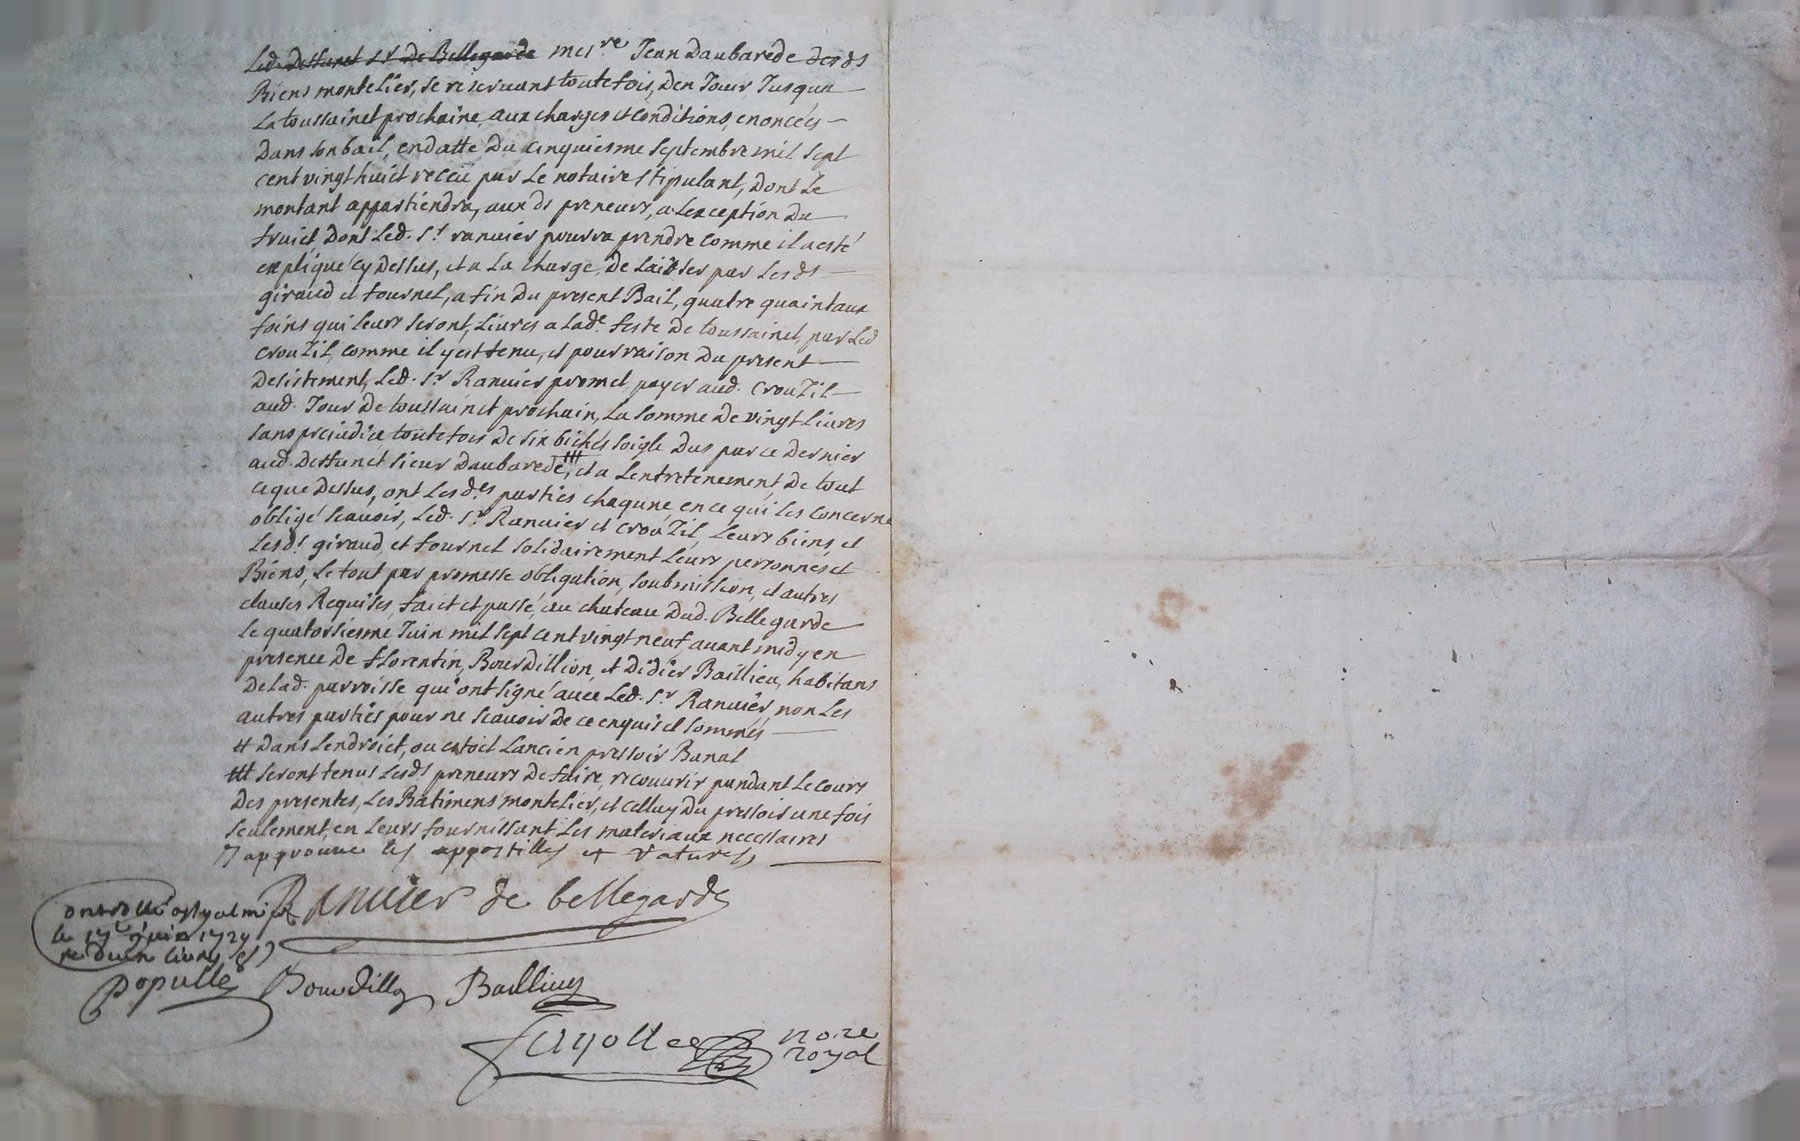 Led. deffunct Sr. de Bellegarde mesre Jean Daubarede desds
Biens montelier, se reservant toutefois, den Jouir Jusqua
La toussainct prochaine, aux charges et conditions, enoncées
Dans son bail, en datte du cinquiesme septembre mil sept
cent vingt huict receü par Le notaire stipulant, dont Le
montant appartiendra, aux ds preneurs, a Lexception du
fruict, dont Led. Sr. ranvier pourra prendre comme il a esté
expliqué cy dessus, et a La charge, de laisser par Lesds
giraud et fournel, a fin du present Bail, quatre quaintaux
foins qui leurs seront, Livres a Lade. feste de toussainct, par Led
crouzil, comme il y est tenu, et pour raison du present
desistement, Led. Sr Ranvier promet, payer aud. crouzil
aud. Jour de toussainct prochain, La somme de vingt Livres
sans prejudice toutefois de six bichés soigle dus par ce dernier
aud. deffunct sieur daubarede, et a Lentretenement de tout
ce que dessus, ont Lesdes parties chaqune en ce qui les concerne
obligé scavoir, Led. Sr. Ranvier et crouzil, leurs biens, et
Lesds giraud, et fournel solidairement leurs personnes et
Biens, Le tout par promesse obligation, soubmission, et autres
clauses Requises, faict et passé, au chateau dud. Bellegarde
le quatorsiesme Juin mil sept cent vingt neuf, avant midy en
presence de florentin, Bourdillion, et didier Baillieu, habitans
de lad. parroisse qui ont signé avec Led. Sr Ranvier, non Les
autres parties pour ne scavoir de ce enquis et sommés
# dans Lendroict, ou estoit Lancien pressoir Banal
seront tenus Lesds preneurs de faire, recouvrir pandant Le cours
des presentes, Les Batimens montelier, et celluy du pressoir une fois
seulement, en leurs fournissant Les materiaux necessaires
J approuve les appostilles et ratures
Ranvier de bellegarde
le 17e juin 1729
Populle Bourdillon Baillieu
fayolle nore
royal